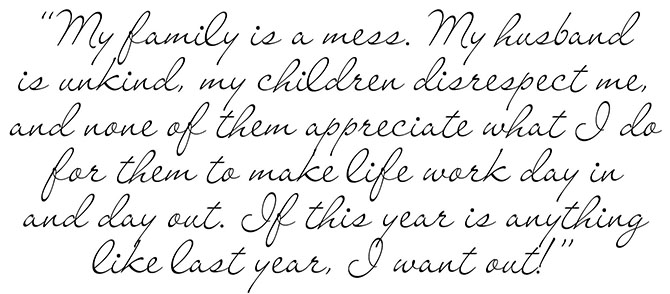 “My family is a mess. My husband
is unkind, my children disrespect me,
and none of them appreciate what I do
for them to make life work day in
and day out. If this year is anything
like last year, I want out!”